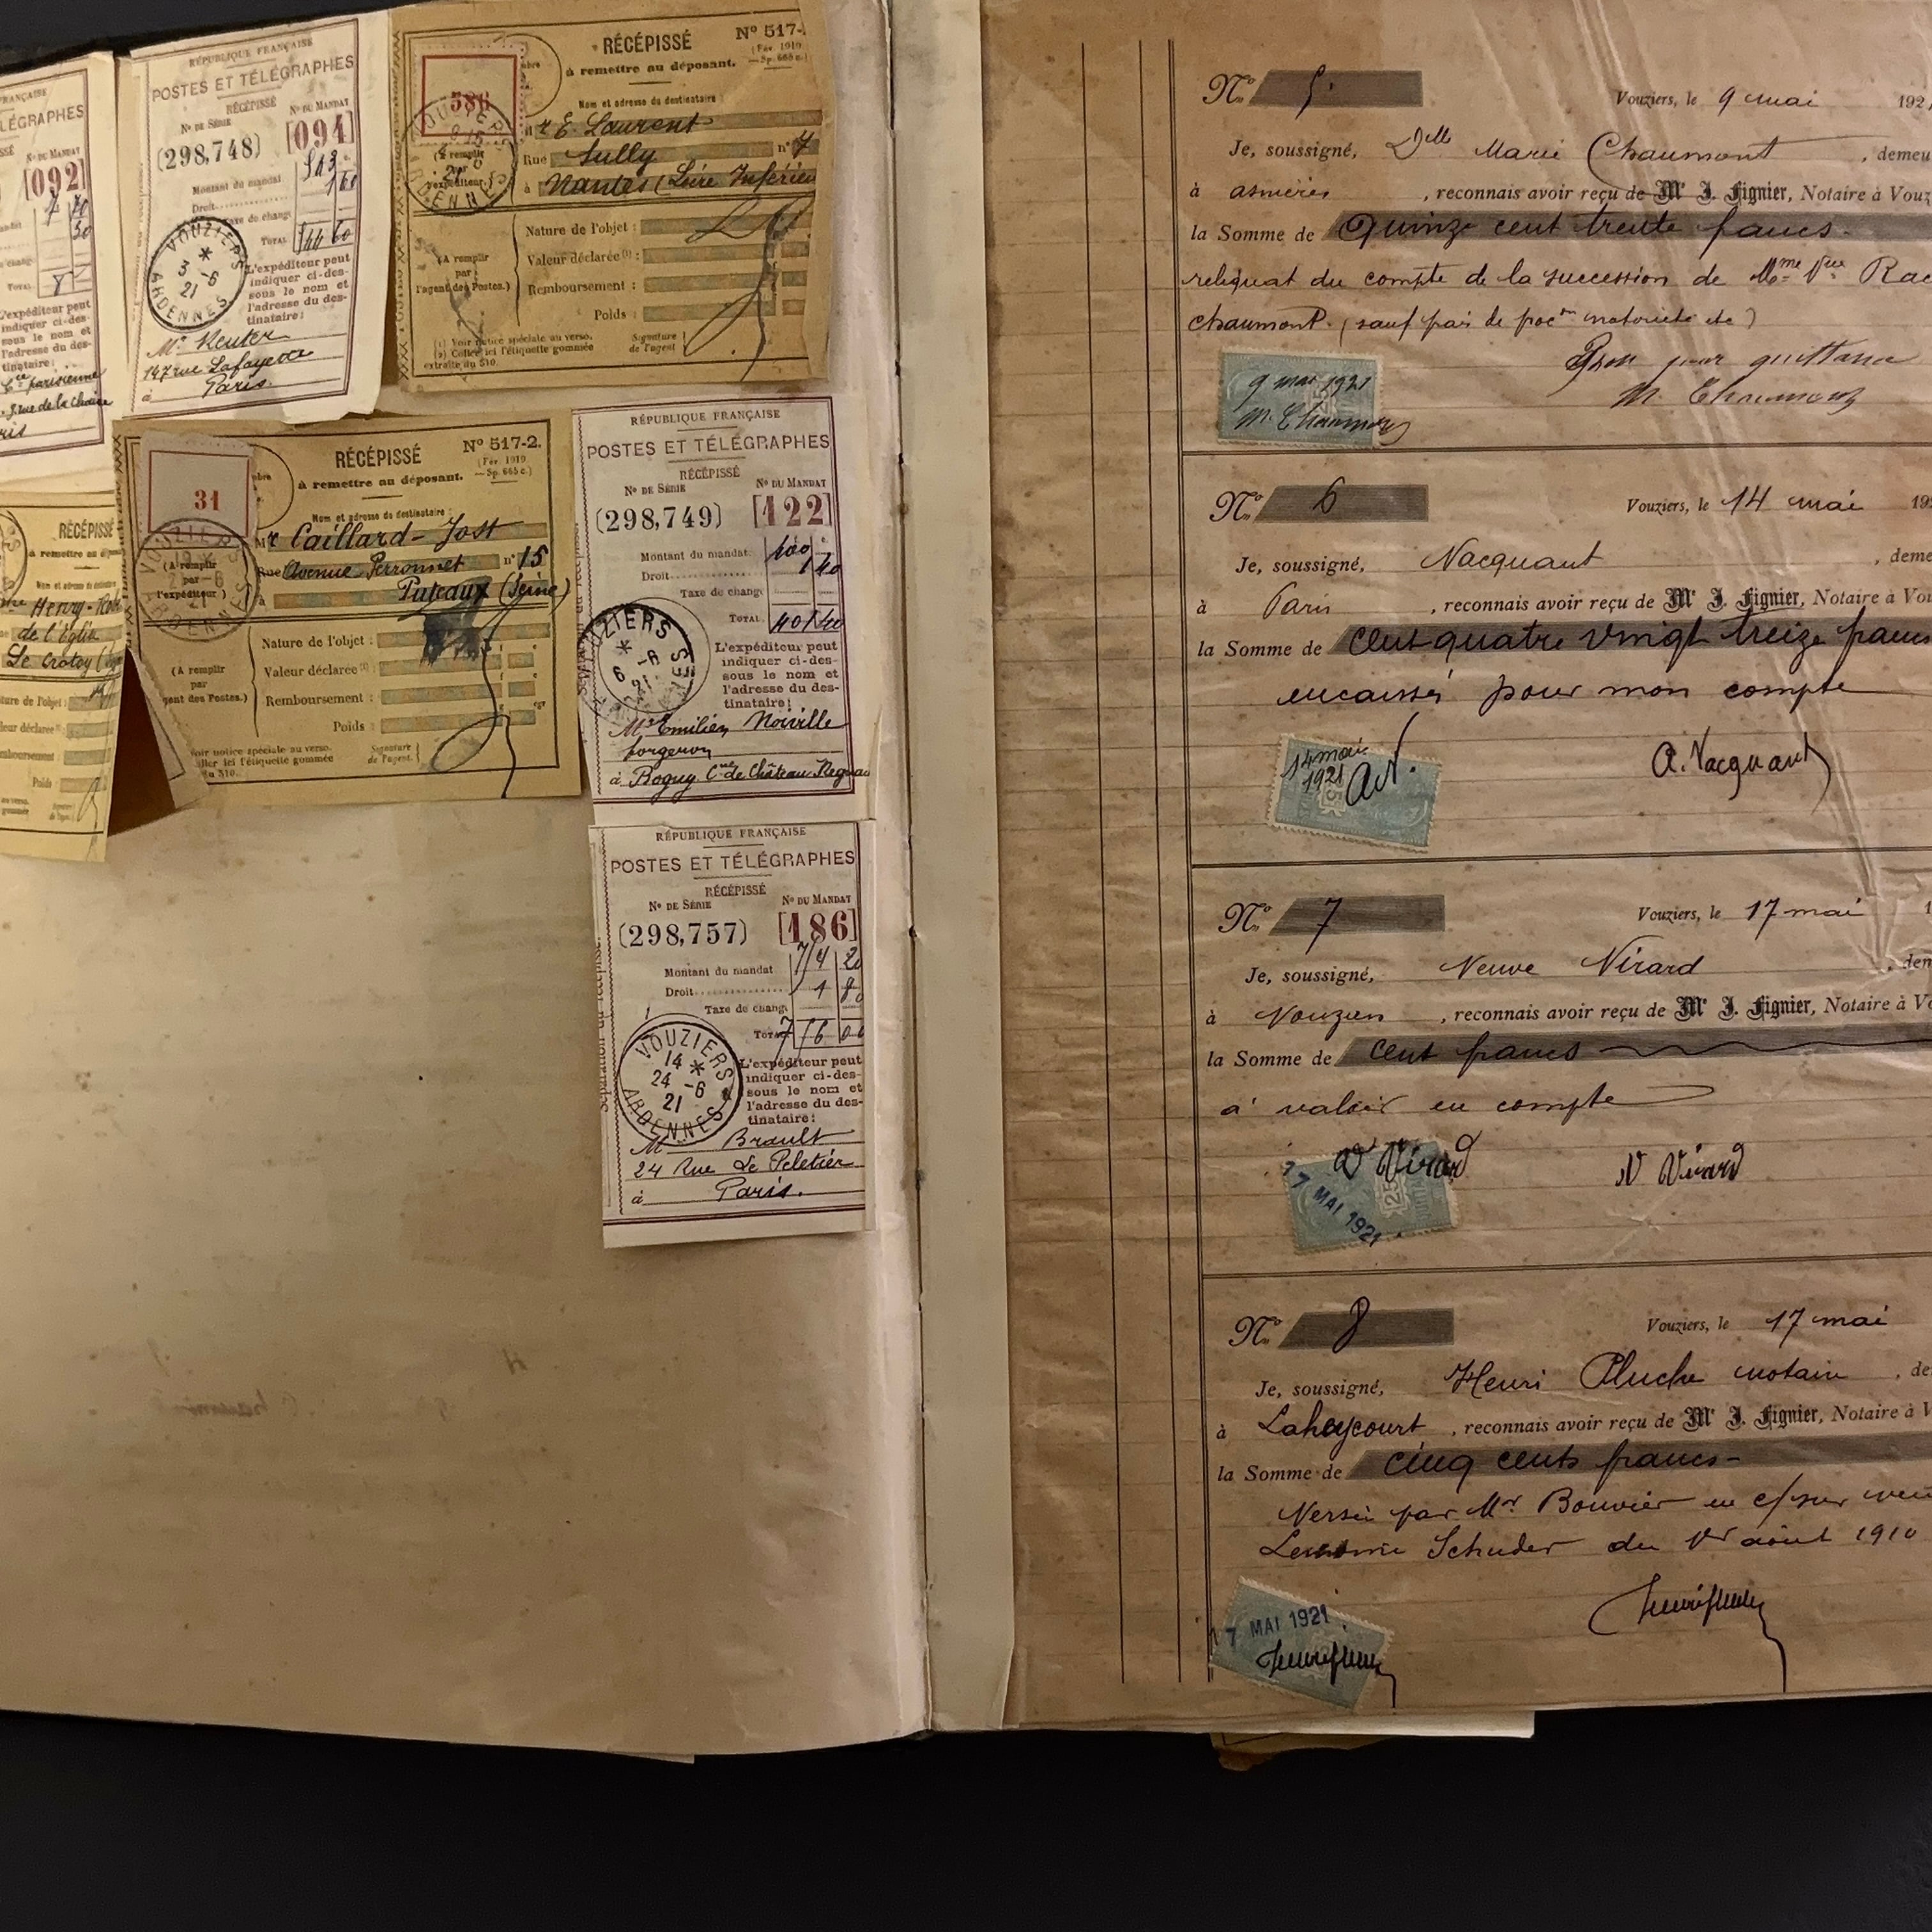 RANÇAISE
LÉGRAPHES
No DU MANDAT
[092]
7 70
30
TOTAL 8
L'expéditeur peut
indiquer ci-des-
sous le nom et
l'adresse du des-
tinataire :
Cie parisienne
rue de la Chaise
RÉPUBLIQUE FRANÇAISE
POSTES ET TÉLÉGRAPHES
RÉCÉPISSÉ
No DE SÉRIE No DU MANDAT
(298,748) [094]
Montant du mandat
Droit 1 60
Taxe de change
TOTAL
VOUZIERS
3 -6
21
ARDENNES
L'expéditeur peut
indiquer ci-des-
sous le nom et
l'adresse du des-
tinataire :
147 rue Lafayette
à Paris
RÉCÉPISSÉ No 517-
à remettre au déposant. (Fév. 1919 — Sp. 665 c.)
586
Nom et adresse du destinataire :
Mr E. Laurent
Rue Sully no 7
à Nantes (Loire Inférieu
(A remplir
par
l'expéditeur.)
Nature de l'objet :
Valeur déclarée (1) :
(A remplir
par
l'agent des Postes.)
Remboursement :
Poids :
(1) Voir notice spéciale au verso.
(2) Coller ici l'étiquette gommée
extraite du 510.
Signature
de l'agent
RÉCÉPISSÉ No 517-2.
à remettre au déposant. (Fév. 1919 — Sp. 665 c.)
31
Nom et adresse du destinataire :
Mr Caillard-Jost
Rue Avenue Perronnet no 15
à Puteaux (Seine)
VOUZIERS
ARDENNES
(A remplir
par
l'expéditeur)
Nature de l'objet :
Valeur déclarée (1) :
(A remplir
par
gent des Postes.)
Remboursement :
Poids :
Voir notice spéciale au verso.
ller ici l'étiquette gommée
du 510.
Signature
de l'agent.
RÉCÉPISSÉ
à remettre au
Nom et adresse du
Henry-
de l'Église
Le Crotoy
ture de l'objet :
leur déclarée
mboursement
Poids :
RÉPUBLIQUE FRANÇAISE
POSTES ET TÉLÉGRAPHES
RÉCÉPISSÉ
No DE SÉRIE No DU MANDAT
(298,749) [122]
Montant du mandat. 100
Droit 1 40
Taxe de chang
TOTAL. 101 40
VOUZIERS
6 -6
21
L'expéditeur peut
indiquer ci-des-
sous le nom et
l'adresse du des-
tinataire :
Mr Emilien Noiville
forgeron
à Bogny Cne de Château Regnau
RÉPUBLIQUE FRANÇAISE
POSTES ET TÉLÉGRAPHES
RÉCÉPISSÉ
No DE SÉRIE No DU MANDAT
(298,757) [186]
Montant du mandat 714 20
Droit 1 80
Taxe de chang.
TOTAL 716 00
Séparation du récépissé.
VOUZIERS
14
24 -6
21
ARDENNES
L'expéditeur peut
indiquer ci-des-
sous le nom et
l'adresse du des-
tinataire :
M Brault
24 Rue Le Peletier
à Paris.
No 5.
Vouziers, le 9 mai 192
Je, soussigné, Delle Marie Chaumont, demeu
à asnières, reconnais avoir reçu de Me J. Fignier, Notaire à Vouz
la Somme de Quinze cent trente francs
reliquat du compte de la succession de Mme Vve Rac
Chaumont. (sauf
Bon pour quittance
M. Chaumont
9 mai 1921
M. Chaumont
No 6
Vouziers, le 14 mai 192
Je, soussigné, Nacquant, deme
à Paris, reconnais avoir reçu de Me J. Fignier, Notaire à Vou
la Somme de Cent quatre vingt treize francs
encaissés pour mon compte
14 mai
1921 AN.
A. Nacquant
No 7
Vouziers, le 17 mai 1
Je, soussigné, Veuve Virard, dem
à Vouziers, reconnais avoir reçu de Me J. Fignier, Notaire à Vo
la Somme de cent francs
à valoir en compte
V Virard
17 MAI 1921
V Virard
No 8
Vouziers, le 17 mai
Je, soussigné, Henri Pluche notaire, de
à Laheycourt, reconnais avoir reçu de Me J. Fignier, Notaire à V
la Somme de cinq cents francs
Versée par Mr Bouvier en c/ sur
Schuder du 1er août 1910
17 MAI 1921